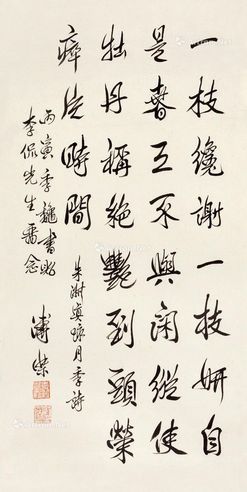 一枝纔謝一枝妍自
是春工不與閑縱使
牡丹稱絕豔到頭榮
瘁片時間
朱淑真咏月季詩
丙寅季龝書貽
李侃先生留念
溥傑